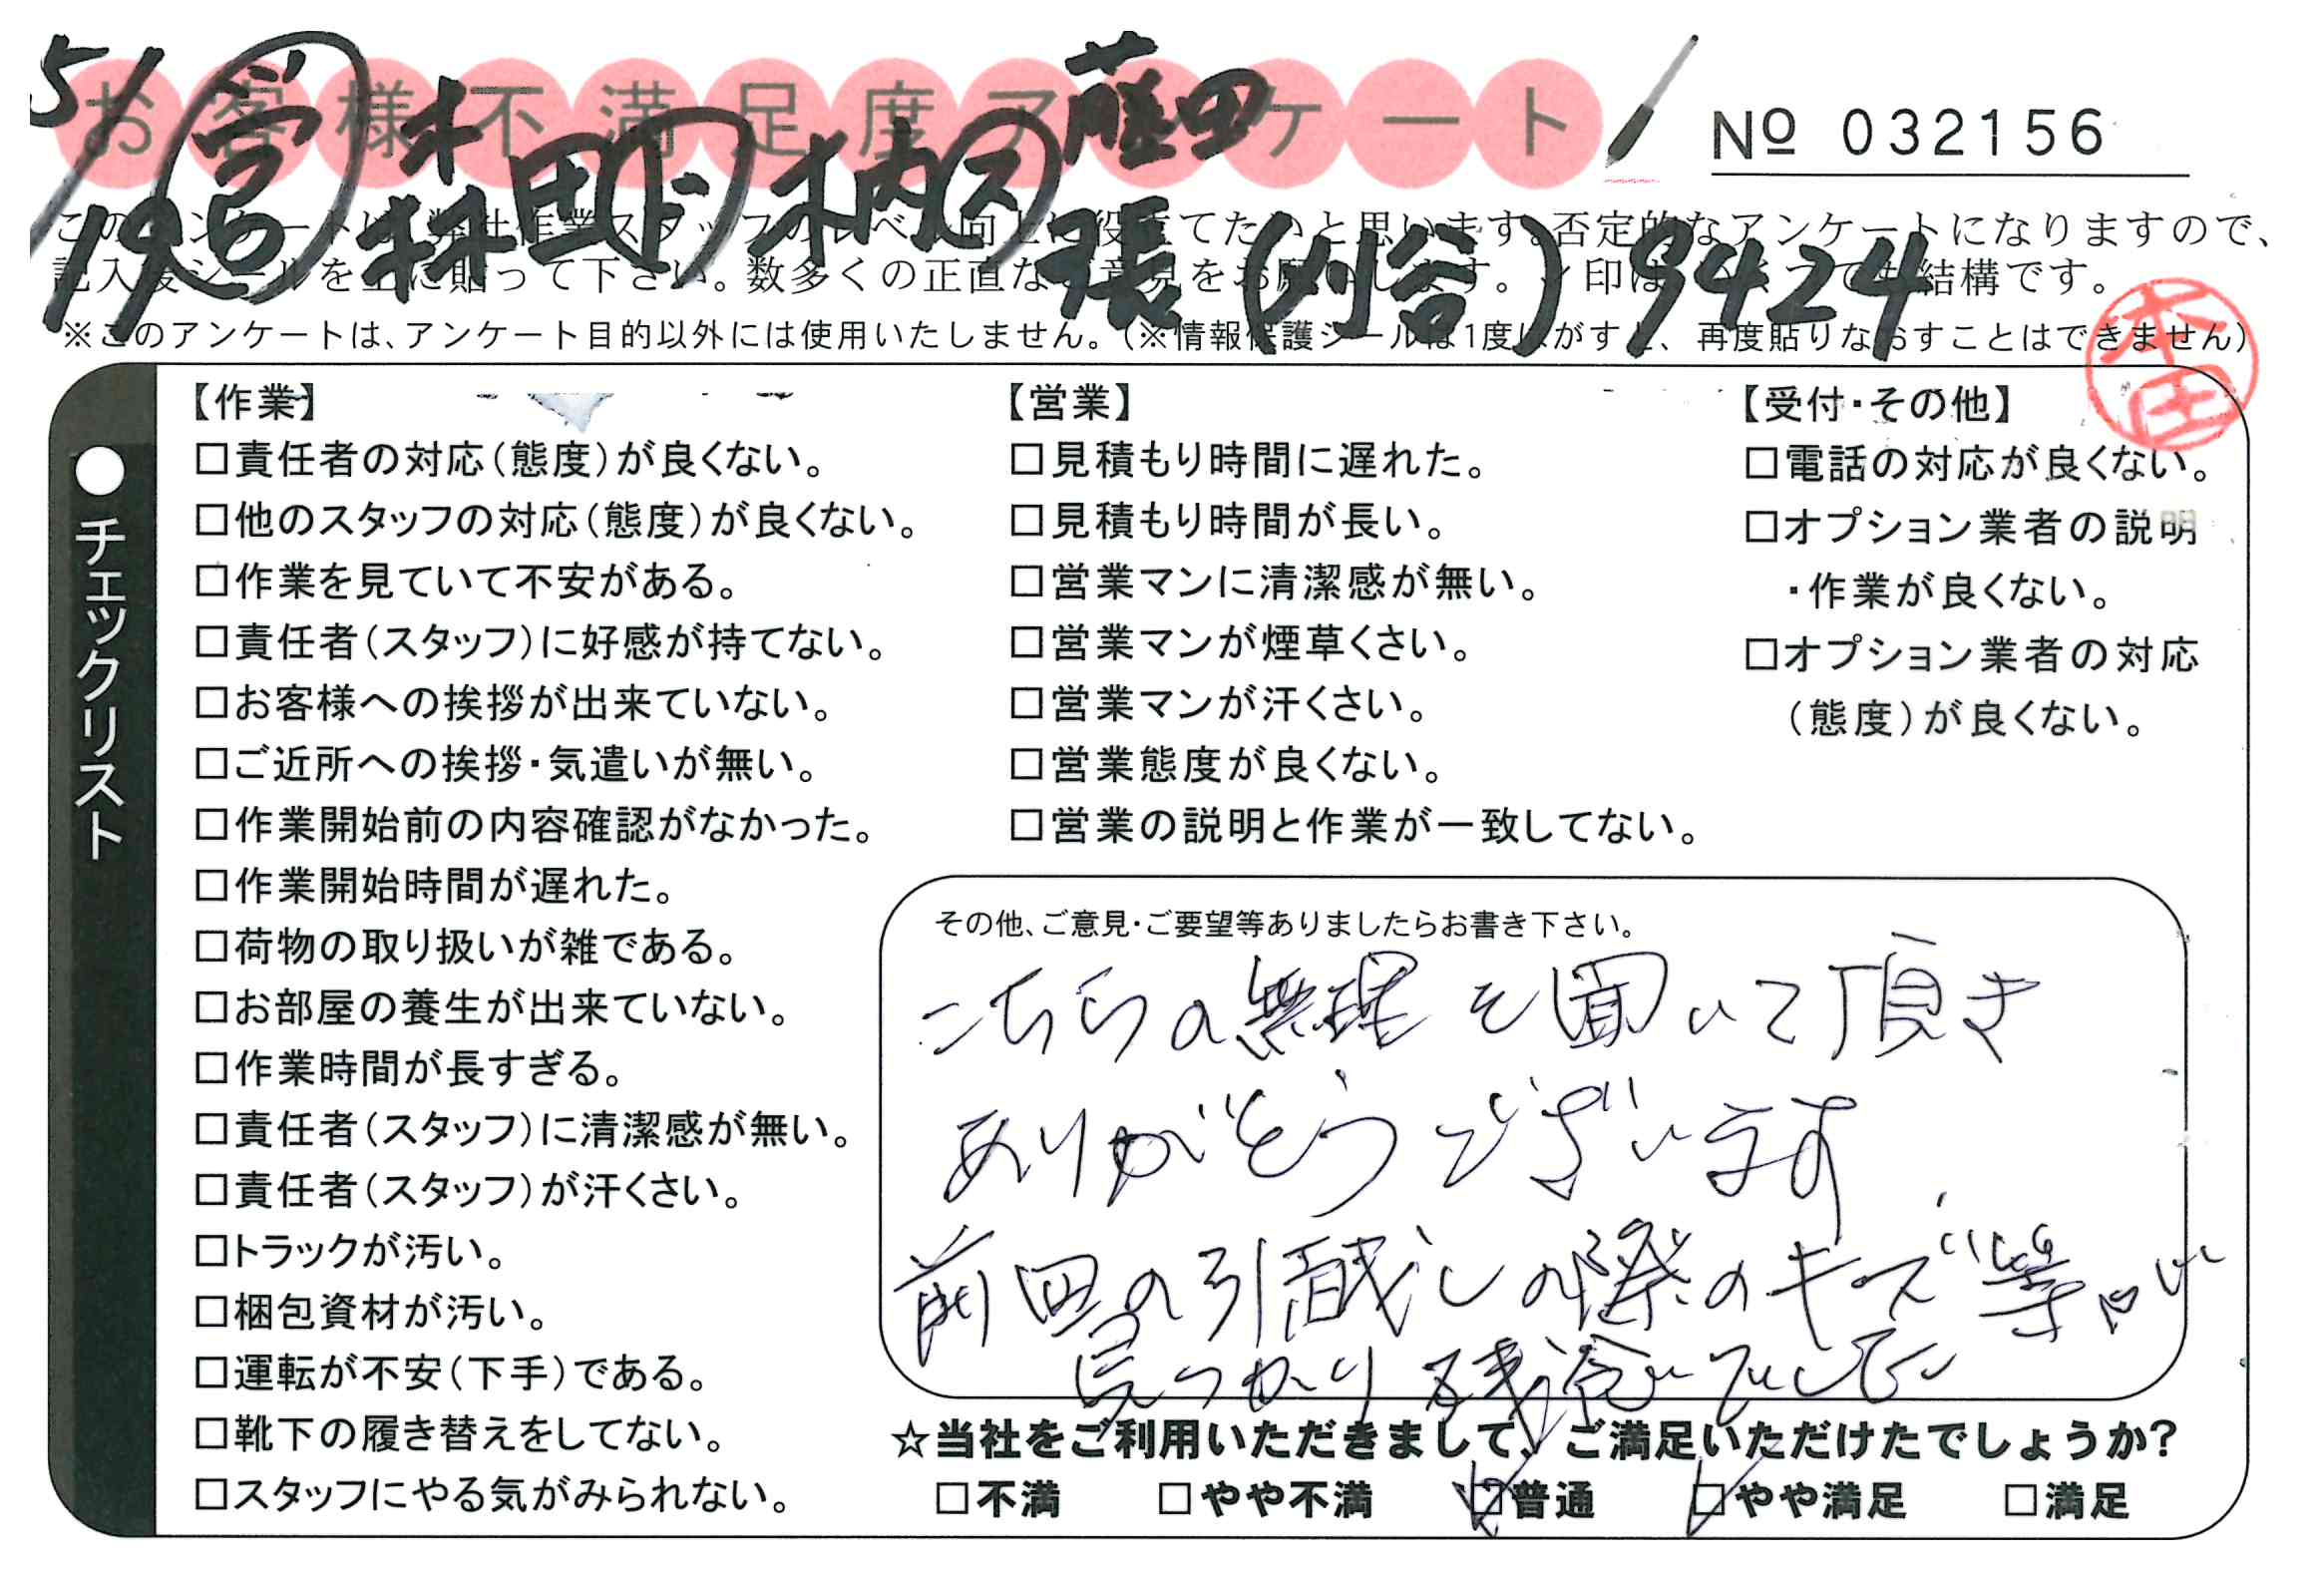 お客様不満足度アンケート
5/19 営 林田 ド 柄 ス 藤田
張(刈谷)9424
№ 032156
このアンケートは、弊社作業スタッフのレベル向上に役立てたいと思います。否定的なアンケートになりますので、
記入後シールを上に貼って下さい。数多くの正直な意見をお願いします。✓印はいくつでも結構です。
※このアンケートは、アンケート目的以外には使用いたしません。(※情報保護シールは1度はがすと、再度貼りなおすことはできません)
本田
●チェックリスト
【作業】
□責任者の対応(態度)が良くない。
□他のスタッフの対応(態度)が良くない。
□作業を見ていて不安がある。
□責任者(スタッフ)に好感が持てない。
□お客様への挨拶が出来ていない。
□ご近所への挨拶・気遣いが無い。
□作業開始前の内容確認がなかった。
□作業開始時間が遅れた。
□荷物の取り扱いが雑である。
□お部屋の養生が出来ていない。
□作業時間が長すぎる。
□責任者(スタッフ)に清潔感が無い。
□責任者(スタッフ)が汗くさい。
□トラックが汚い。
□梱包資材が汚い。
□運転が不安(下手)である。
□靴下の履き替えをしてない。
□スタッフにやる気がみられない。
【営業】
□見積もり時間に遅れた。
□見積もり時間が長い。
□営業マンに清潔感が無い。
□営業マンが煙草くさい。
□営業マンが汗くさい。
□営業態度が良くない。
□営業の説明と作業が一致してない。
【受付・その他】
□電話の対応が良くない。
□オプション業者の説明
・作業が良くない。
□オプション業者の対応
(態度)が良くない。
その他、ご意見・ご要望等ありましたらお書き下さい。
こちらの無理を聞いて頂き
ありがとうございます
前回の引越しの際のキズ等が
見つかり残念でした
☆当社をご利用いただきまして、ご満足いただけたでしょうか?
□不満 □やや不満 ☑普通 ☑やや満足 □満足